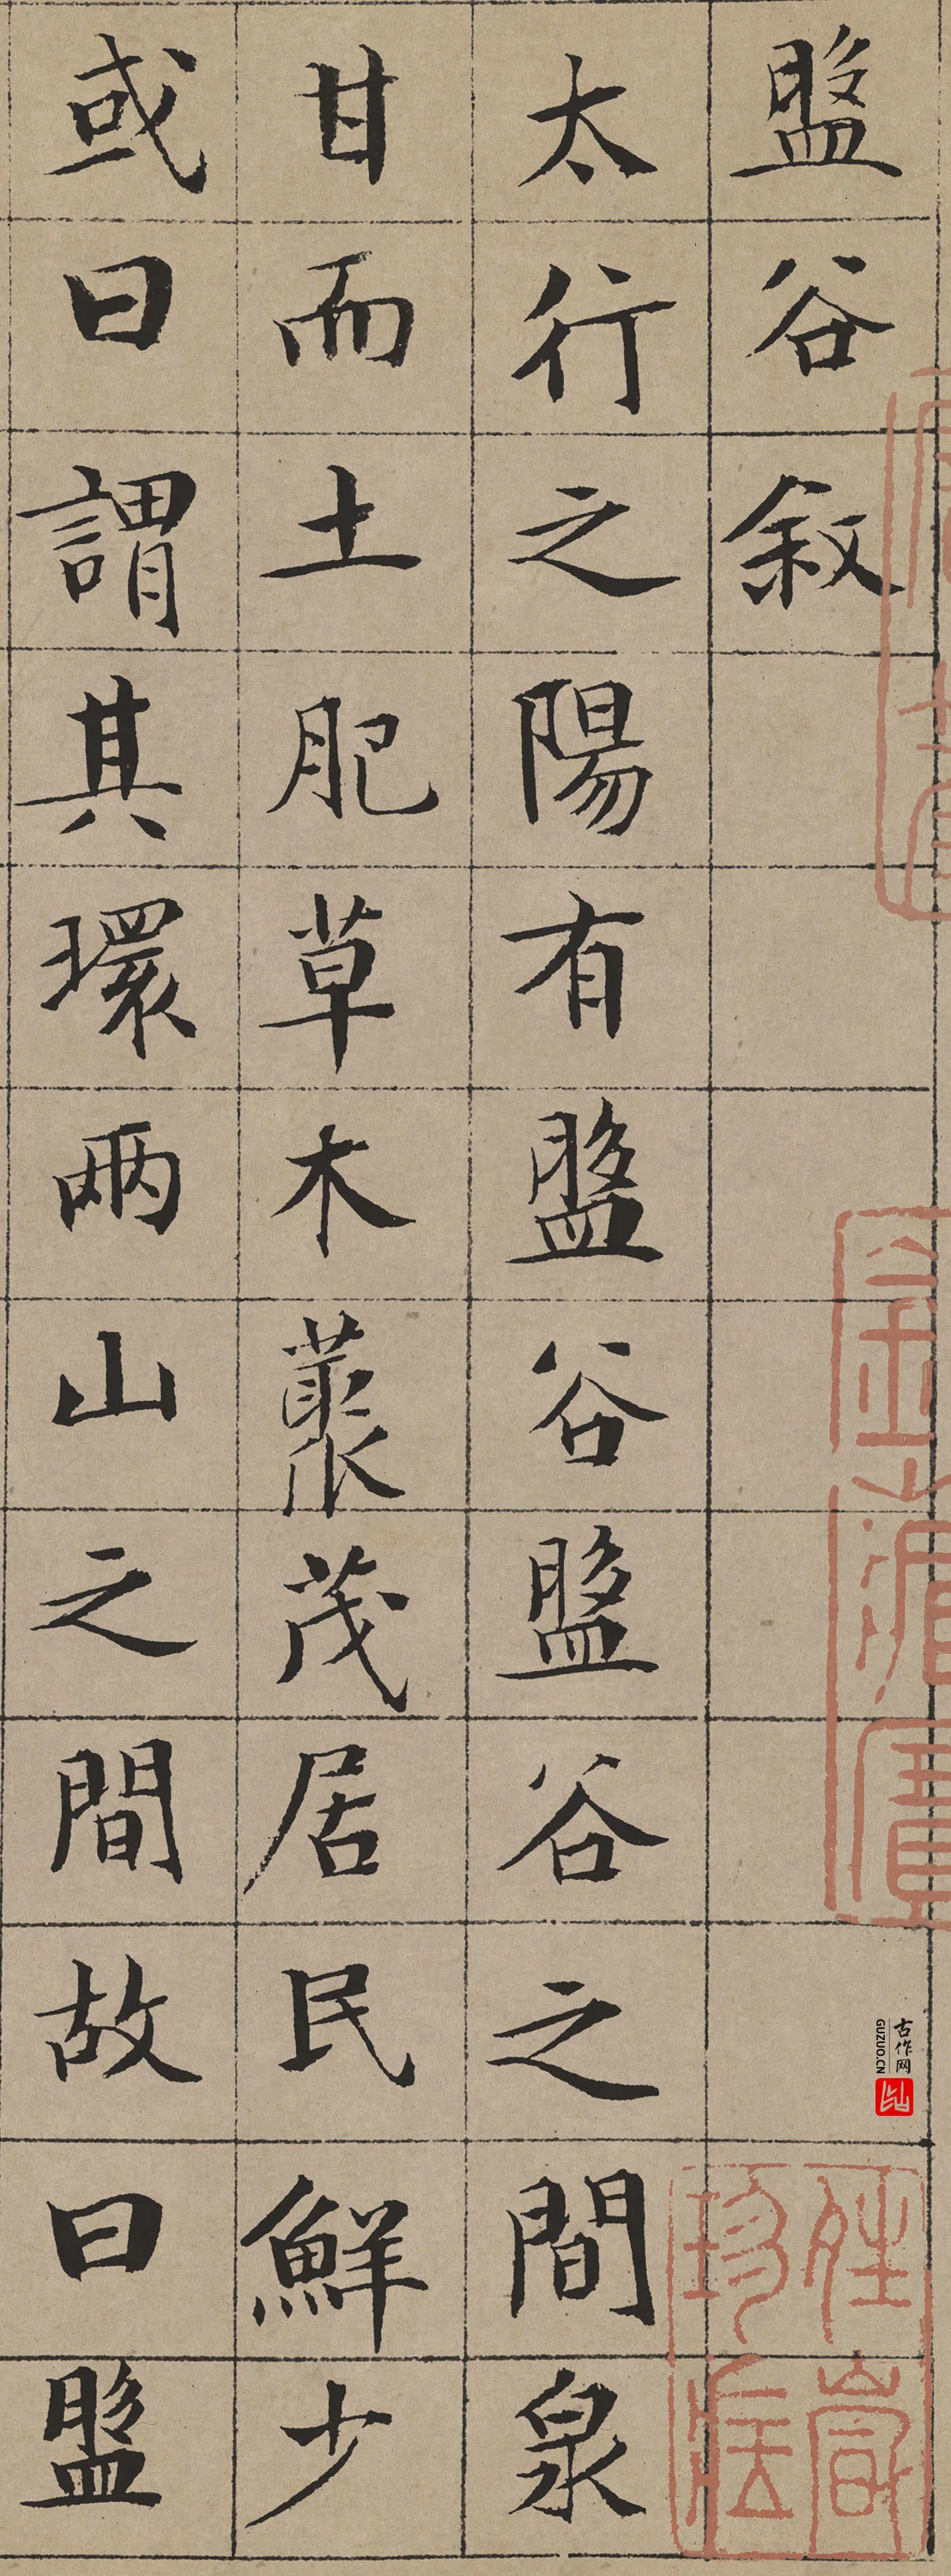 盤谷敘
太行之陽有盤谷盤谷之間泉
甘而土肥草木蘩茂居民鮮少
或曰謂其環兩山之間故曰盤
古作网
GUZUO.CN